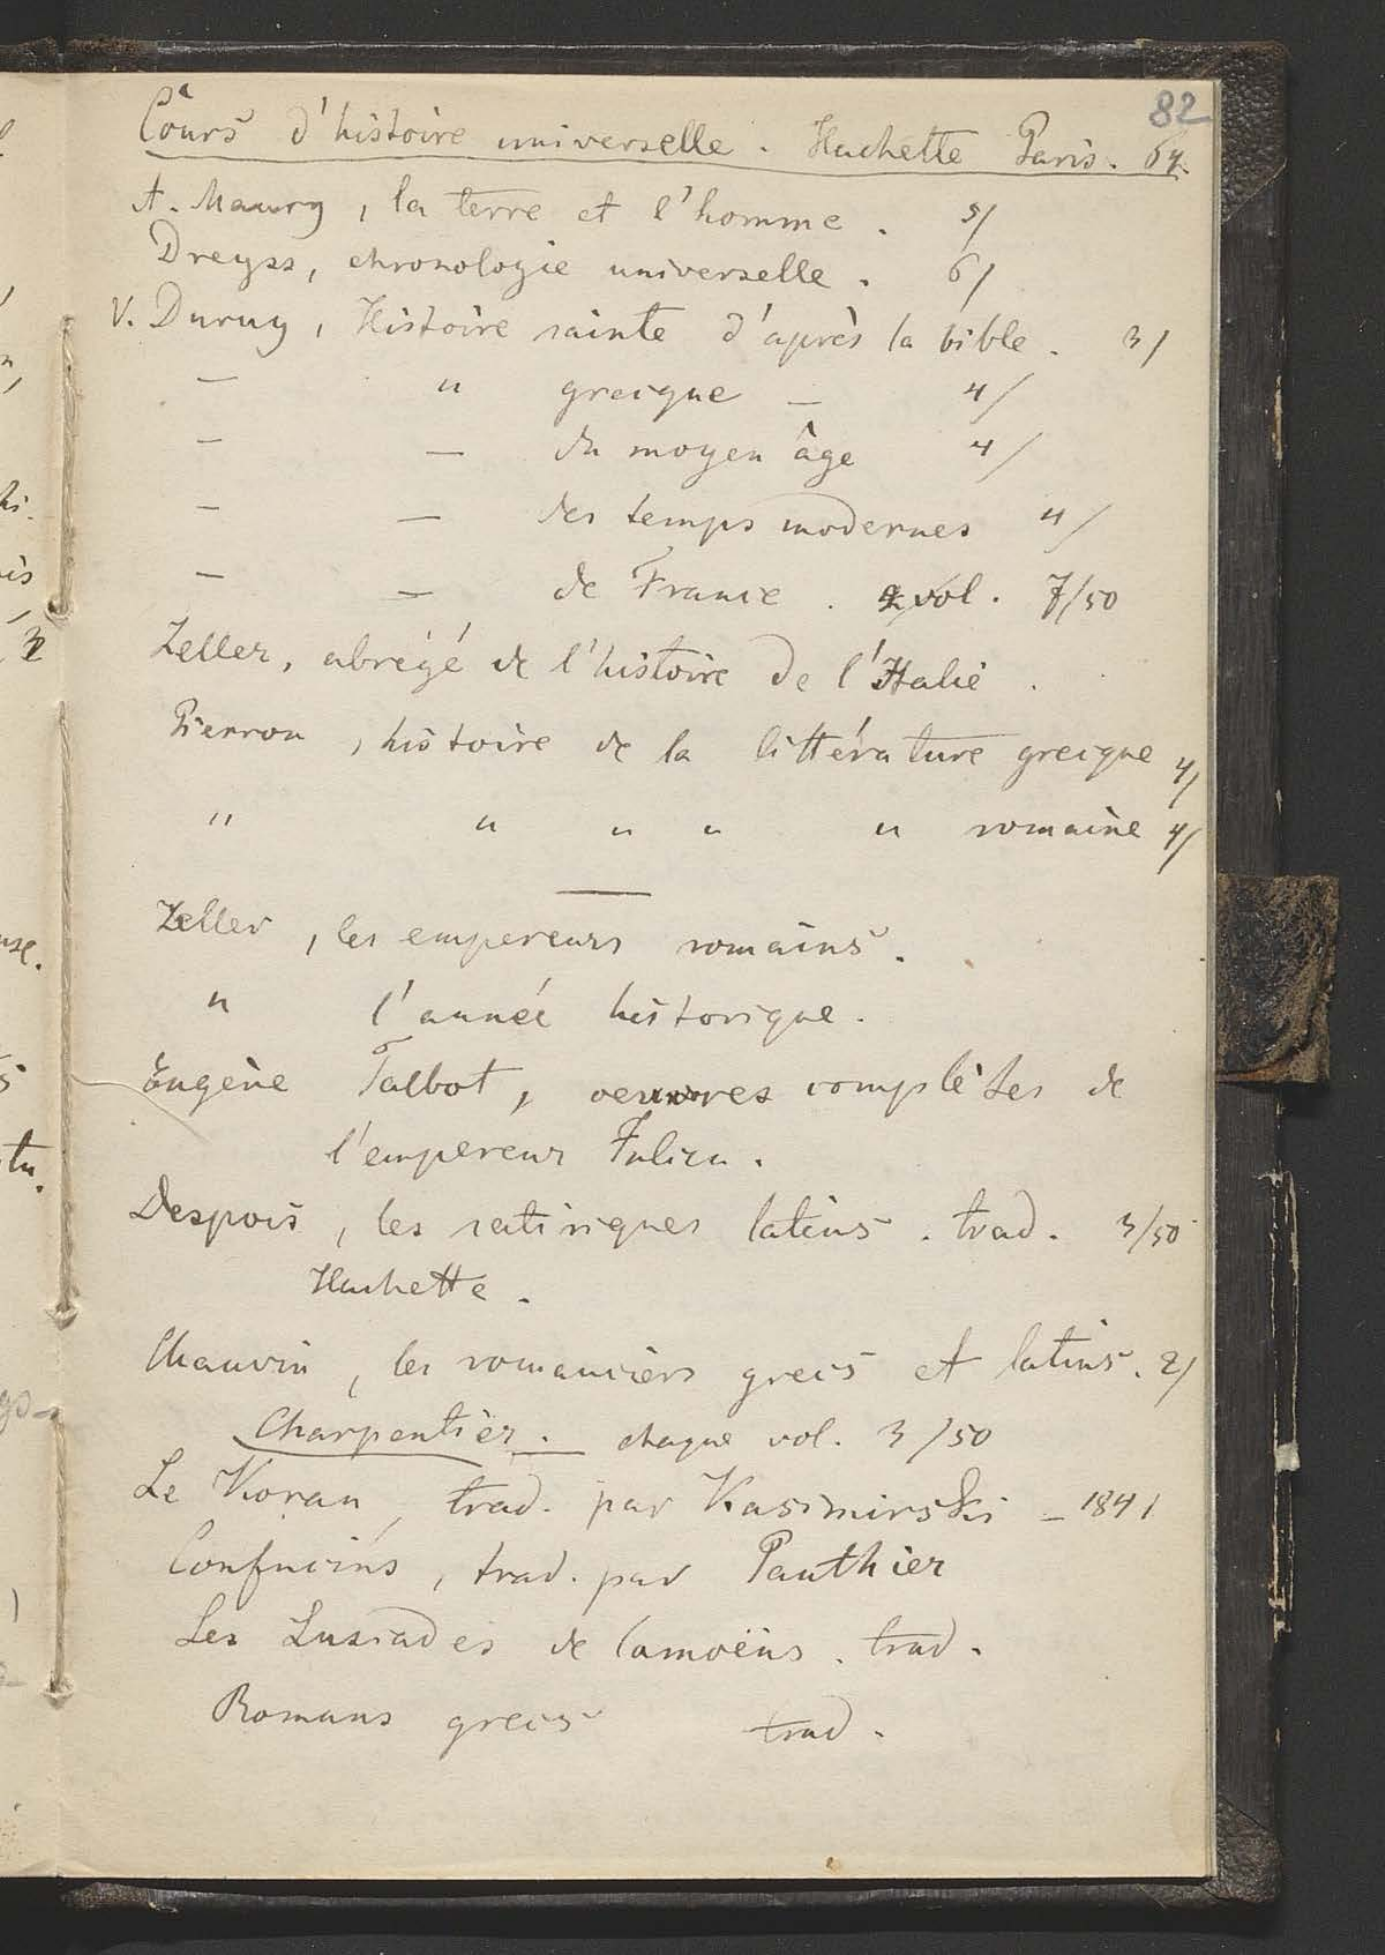 82
Cours d'histoire universelle. Hachette Paris. 64.
A. Maury, la terre et l'homme. 5/
Dreyss, chronologie universelle. 6/
V. Duruy, Histoire sainte d'après la bible. 3/
— " grecque — 4/
— — du moyen âge 4/
— — des temps modernes 4/
— — de France. 2 vol. 7/50
Zeller, abrégé de l'histoire de l'Italie.
Pierron, histoire de la littérature grecque 4/
" " " " " romaine 4/
—
Zeller, les empereurs romains.
" l'année historique.
Eugène Talbot, oeuvres complètes de
l'empereur Julien.
Despois, les satiriques latins. trad. 3/50
Hachette.
Chauvin, les romanciers grecs et latins. 2/
Charpentier. — chaque vol. 3/50
Le Koran, trad. par Kasimirski — 1841
Confucius, trad. par Pauthier
Les Lusiades de Camoëns. trad.
Romans grecs trad.